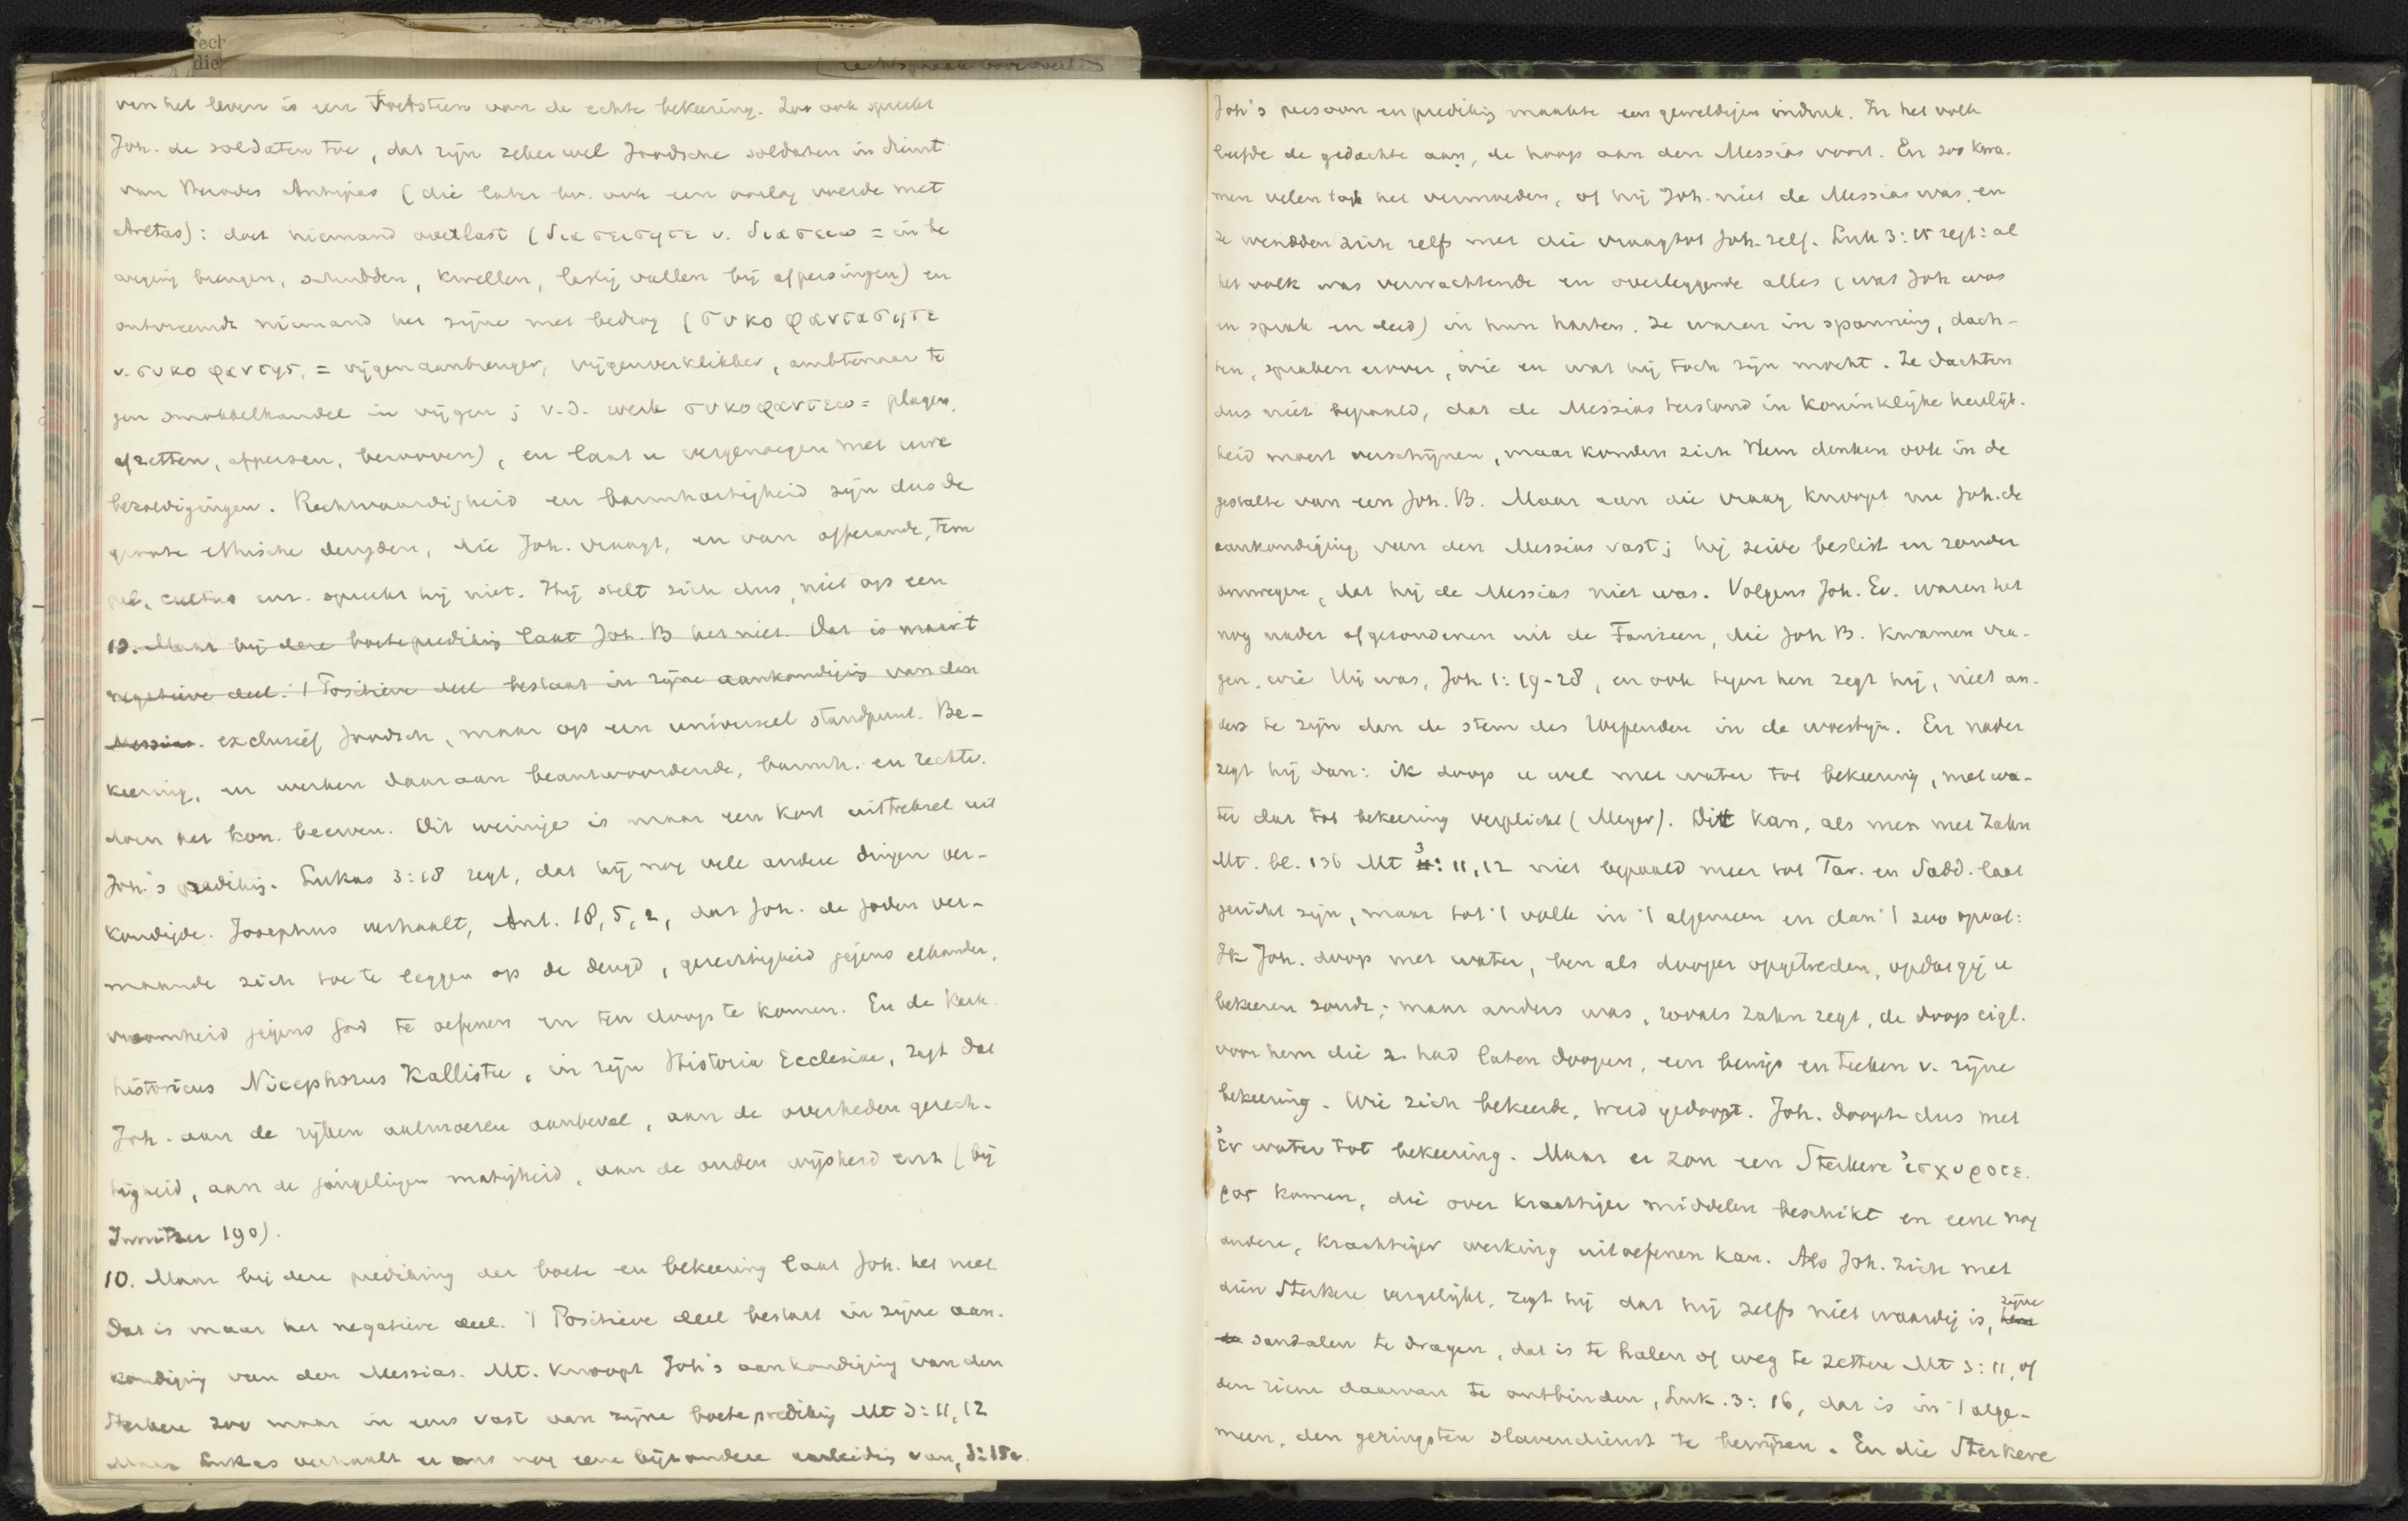 rech
die
van het leven is een Toetssteen van de echte bekeering. Zoo ook spreekt
Joh. de soldaten toe, dat zijn zeker wel Joodsche soldaten in dienst
van Herodes Antipas (die later bv. ook een oorlog voerde met
Aretas): doet niemand overlast (διασεισητε v. διασειω = in be
weging brengen, schudden, kwellen, lastig vallen bij afpersingen) en
ontvreemde niemand het zijne met bedrog (συκοφαντασητε
v. συκοφαντης, = vijgenaanbrenger, vijgenverklikker, ambtenaar te
gen smokkelhandel in vijgen; v.d. werk συκοφαντεω = plagen,
afzetten, afpersen, berooven), en laat u vergenoegen met uwe
bezoldigingen. Rechtvaardigheid en barmhartigheid zijn dus de
groote ethische deugden, die Joh. vraagt, en van offerande, tem
pel, cultus enz. spreekt hij niet. Hij stelt zich dus niet op een
10. Maar bij deze boeteprediking laat Joh. B het niet. Dat is maar 't
negatieve deel. 't Positieve deel bestaat in zijne aankondiging van den
Messias. exclusief Joodsch, maar op een universeel standpunt. Be-
keering, en werken daaraan beantwoordende, barmh. en rechtv.
doen het kon. beerven. Dit weinige is maar een kort uittreksel uit
Joh.'s prediking. Lukas 3:18 zegt, dat hij nog vele andere dingen ver-
kondigde. Josephus verhaalt, Ant. 18, 5, 2, dat Joh. de Joden ver-
maande zich toe te leggen op de deugd, gerechtigheid jegens elkander,
vroomheid jegens God te oefenen en ten doop te komen. En de kerk-
historicus Nicephorus Kallistu, in zijn Historia Ecclesiae, zegt dat
Joh. aan de rijken aalmoezen aanbeval, aan de overheden gerech-
tigheid, aan de jongelingen matigheid, aan de ouden wijsheid enz (bij
Innitzer 190).
10. Maar bij deze prediking der boete en bekeering laat Joh. het niet.
Dat is maar het negatieve deel. 't Positieve deel bestaat in zijne aan-
kondiging van den Messias. Mt. knoopt Joh's aankondiging van den
Sterkere zoo maar in eens vast aan zijne boeteprediking Mt 3:11,12
Maar Lukas verhaalt er ons nog eene bijzondere aanleiding van, 3:15v.
Joh's persoon en prediking maakte een geweldigen indruk. In het volk
leefde de gedachte aan, de hoop aan den Messias voort. En zoo kwa-
men velen tot het vermoeden, of hij Joh. niet de Messias was, en
ze wendden zich zelfs met die vraag tot Joh. zelf. Luk 3:15 zegt: al
het volk was verwachtende en overleggende alles (wat Joh was
en sprak en deed) in hun harten. Ze waren in spanning, dach-
ten, spraken erover, wie en wat hij toch zijn mocht. Ze dachten
dus niet bepaald, dat de Messias terstond in koninklijke heerlijk-
heid moest verschijnen, maar konden zich Hem denken ook in de
gestalte van een Joh. B. Maar aan die vraag knoopt nu Joh. de
aankondiging van den Messias vast; hij zeide beslist en zonder
omwegen, dat hij de Messias niet was. Volgens Joh. Ev. waren het
nog nader afgezondenen uit de Farizeen, die Joh B. kwamen vra-
gen, wie Hij was, Joh. 1:19-28, en ook tegen hen zegt hij, niet an-
ders te zijn dan de stem des Roependen in de woestijn. En nader
zegt hij dan: ik doop u wel met water tot bekeering, met wa-
ter dat tot bekeering verplicht (Meyer). Dit kan, als men met Zahn
Mt. bl. 136 Mt 3:11,12 niet bepaald meer tot Far. en Sadd. laat
gericht zijn, maar tot 't volk in 't algemeen en dan 't zoo opvat:
Ik Joh. doop met water, ben als dooper opgetreden, opdat gij u
bekeeren zoudt; maar anders was, zooals Zahn zegt, de doop eigl.
voor hem die z. had laten doopen, een bewijs en teeken v. zijne
bekeering. Wie zich bekeerde, werd gedoopt. Joh. doopte dus met
ἐν water tot bekeering. Maar er zou een Sterkere ἰσχυροτε-
ρος komen, die over krachtiger middelen beschikt en eene nog
andere, krachtiger werking uitoefenen kan. Als Joh. zich met
dien Sterkere vergelijkt, zegt hij dat hij zelfs niet waardig is, zijne
sandalen te dragen, dat is te halen of weg te zetten Mt 3:11, of
den riem daarvan te ontbinden, Luk. 3:16, dat is in 't alge-
meen, den geringsten slavendienst te bewijzen. En die Sterkere